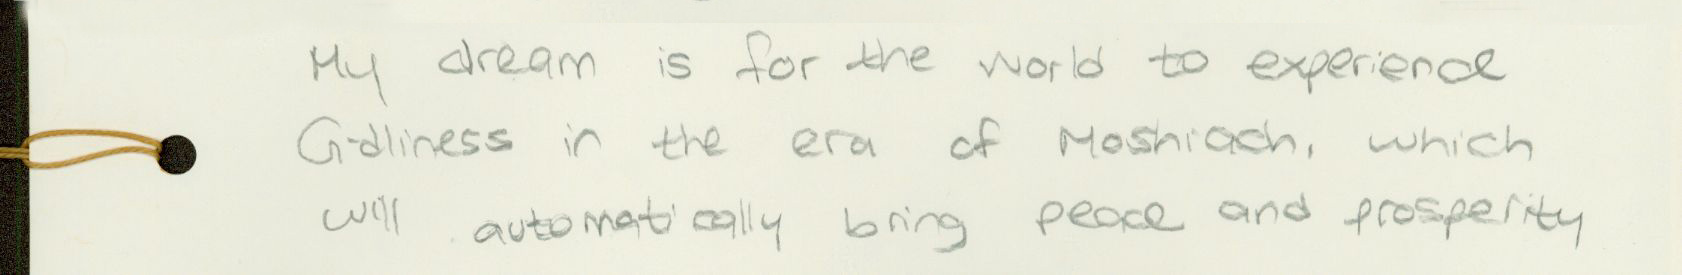 My dream is for the world to experience
G-dliness in the era of Moshiach, which
will automatically bring peace and prosperity